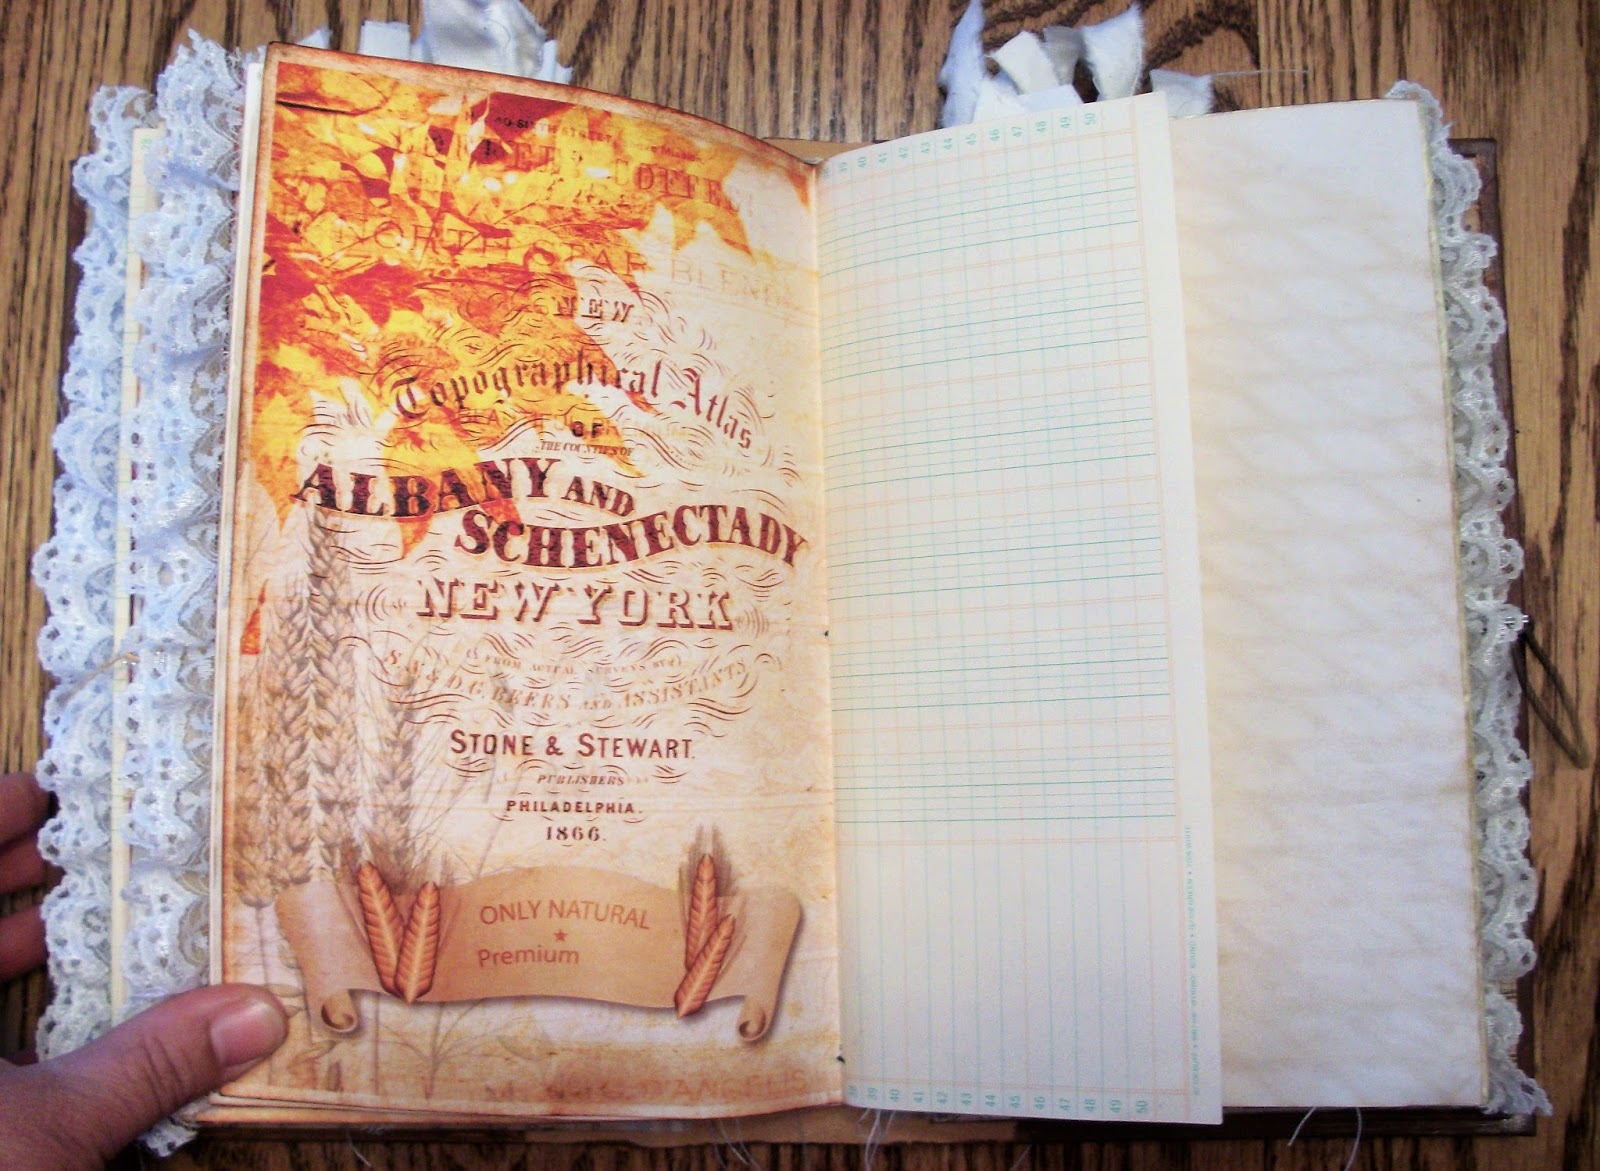 COFFEE
NORTH STAR BLEND
NEW
Topographical Atlas
OF
THE COUNTIES OF
ALBANY AND
SCHENECTADY
NEW YORK
FROM ACTUAL SURVEYS BY
S.N. & D.G. BEERS AND ASSISTANTS
STONE & STEWART.
PUBLISHERS
PHILADELPHIA.
1866.
ONLY NATURAL
Premium
D'ANGELIS
28
39 40 41 42 43 44 45 46 47 48 49 50
38 39 40 41 42 43 44 45 46 47 48 49 50